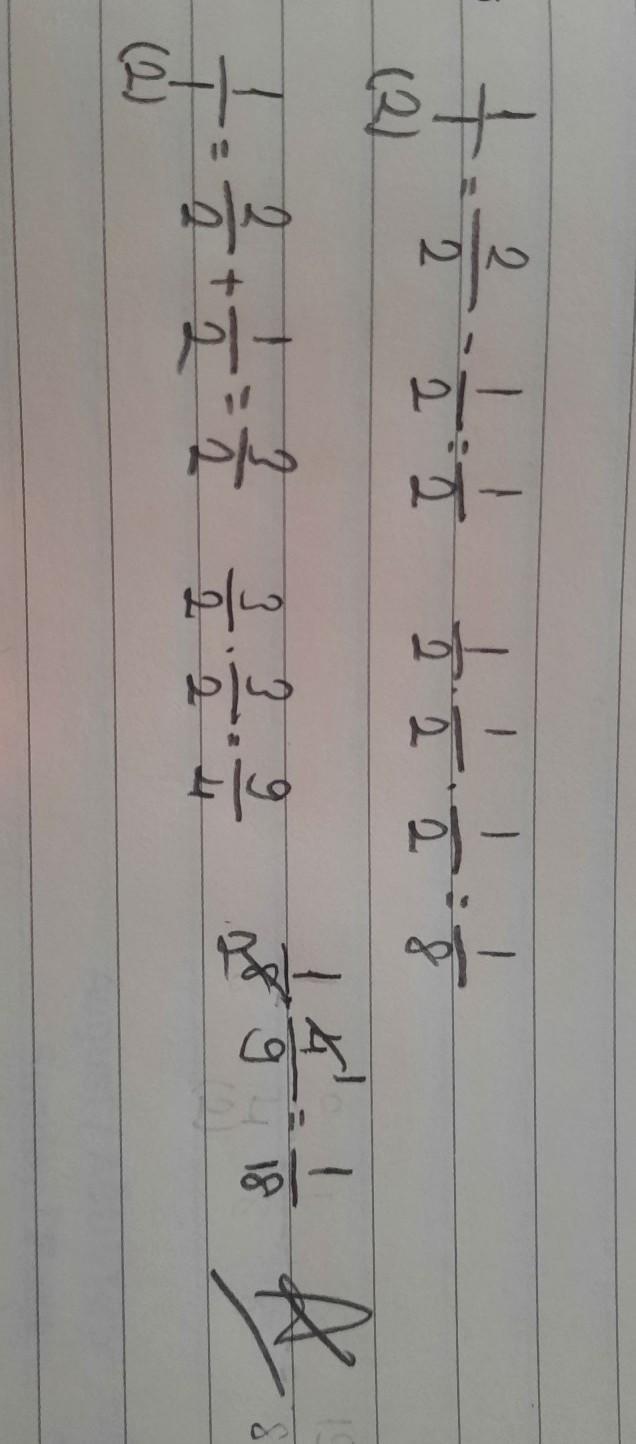 1/1 (2) = 2/2 - 1/2 = 1/2 1/2 · 1/2 · 1/2 = 1/8
1/1 (2) = 2/2 + 1/2 = 3/2 3/2 · 3/2 = 9/4 1/8 2 · 4 1/9 = 1/18 A